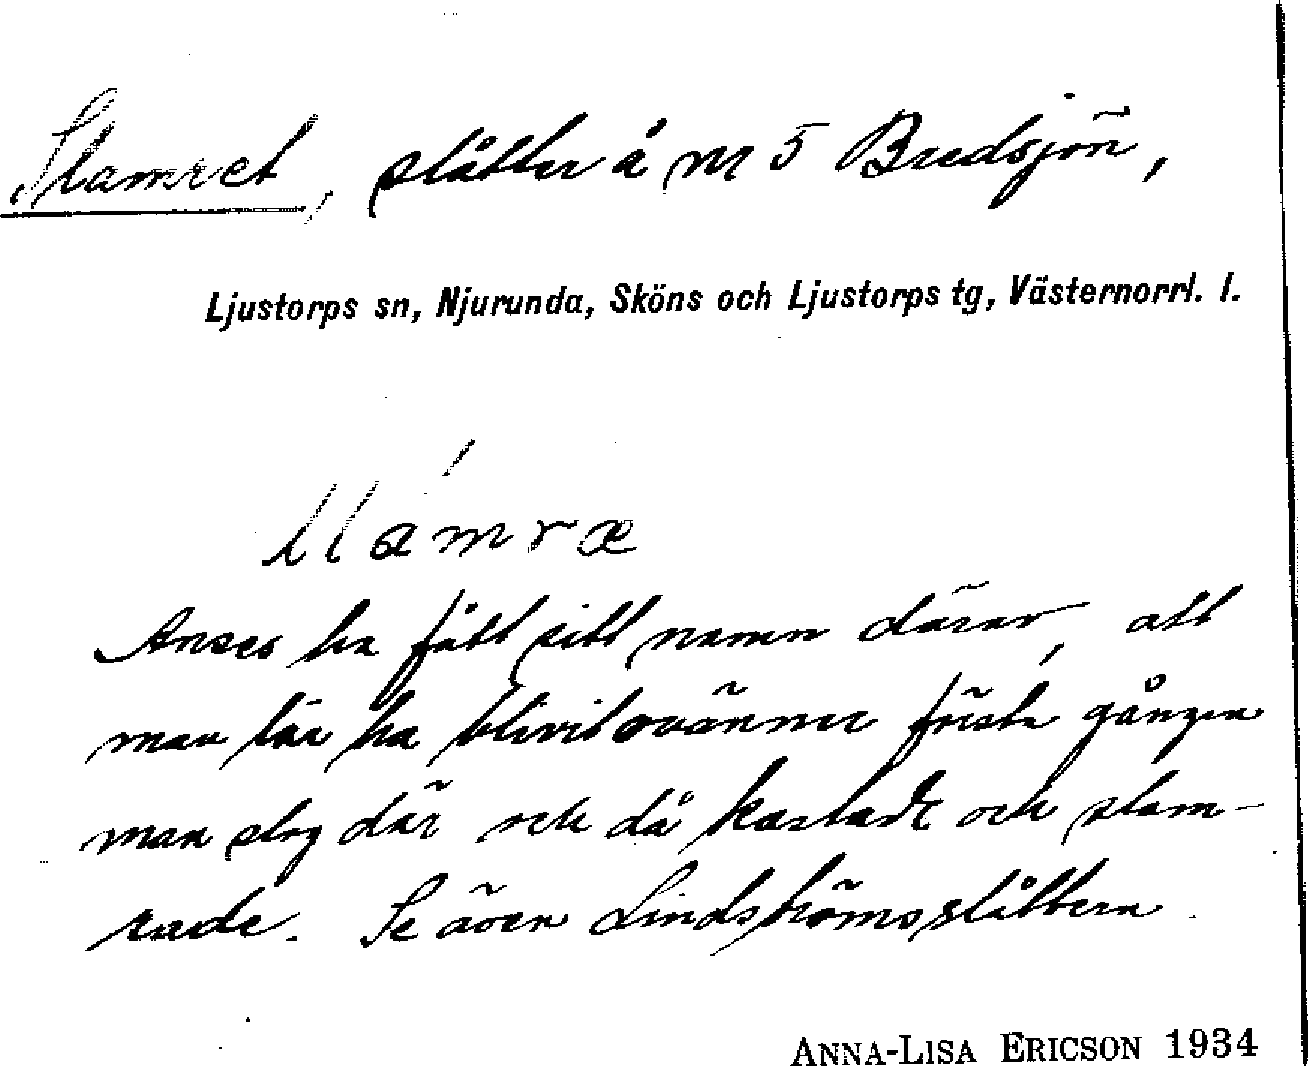 Slamret, slåtter å nr 5 Bredsjön,
Ljustorps sn, Njurunda, Sköns och Ljustorps tg, Västernorrl. l.
slámræ
Anses ha fått sitt namn därav, att
man lär ha blivit ovänner första gången
man slog där och då kastade och slam-
rade. Se även Lindströmsslåttern.
ANNA-LISA ERICSON 1934